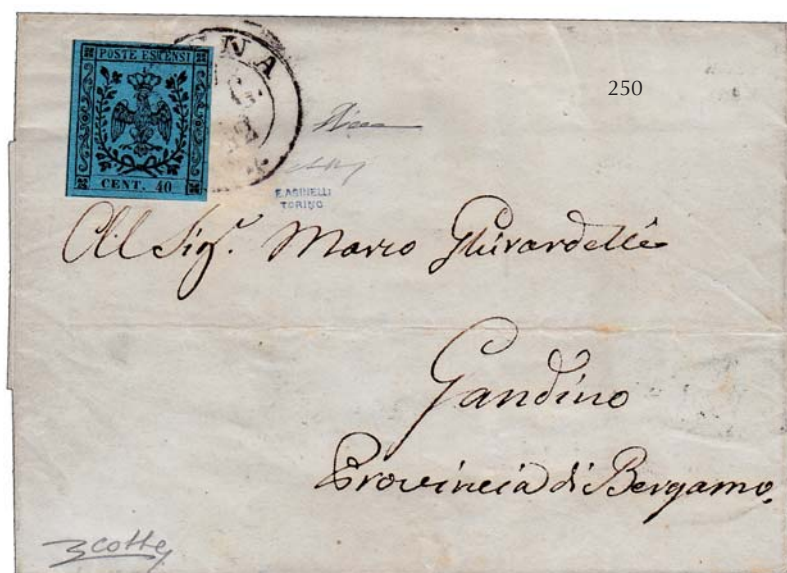 POSTE ESTENSI
CENT. 40
250
E. AGINELLI
TORINO
All Sigr. Marco Ghirardelli
Gandino
Provincia di Bergamo.